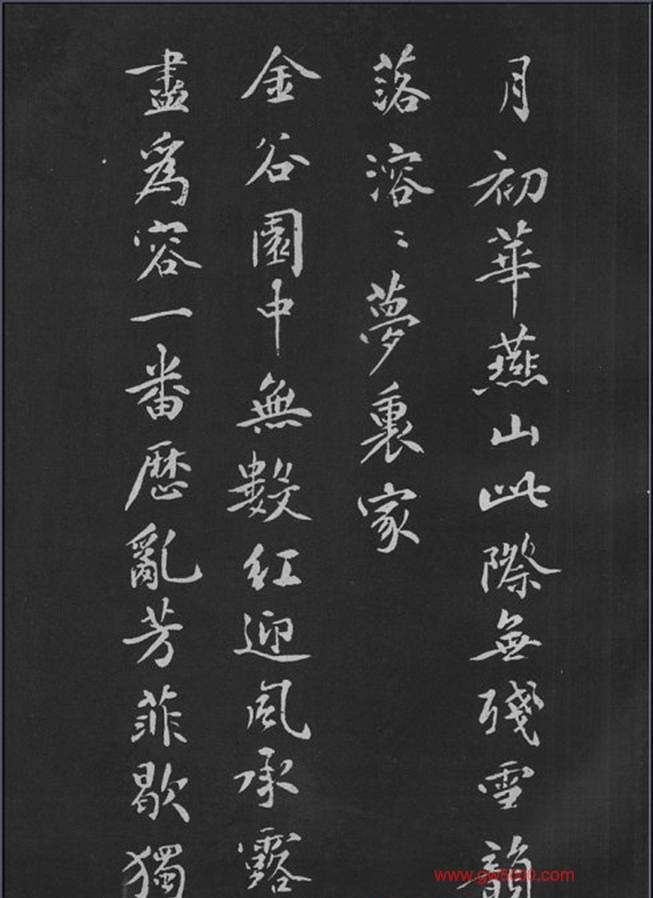 月初華燕山此際無殘雪韻
落溶〻夢裏家
金谷園中無數紅迎風承露
盡為容一番歷亂芳菲歇獨
www.gw8000.com